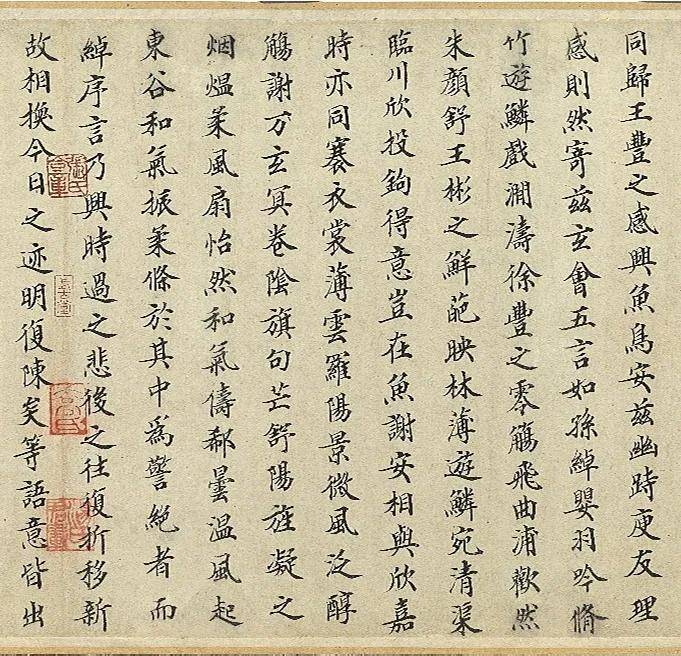 同歸王豐之感興魚鳥安茲幽跱庾友理
感則然寄茲玄會五言如孫綽嚶羽吟脩
竹遊鱗戲澗濤徐豐之零觴飛曲浦歡然
朱顏舒王彬之鮮葩映林薄遊鱗宛清渠
臨川欣投鉤得意豈在魚謝安相與欣嘉
時亦同褰衣裳薄雲羅陽景微風泛醇
觴謝万玄冥卷陰旗句芒舒陽旌凝之
烟熅柔風扇怡然和氣儔郗曇温風起
東谷和氣振柔條於其中為警絶者而
綽序言乃興時過之悲後之往復折移新
故相換今日之迹明復陳矣等語意皆出